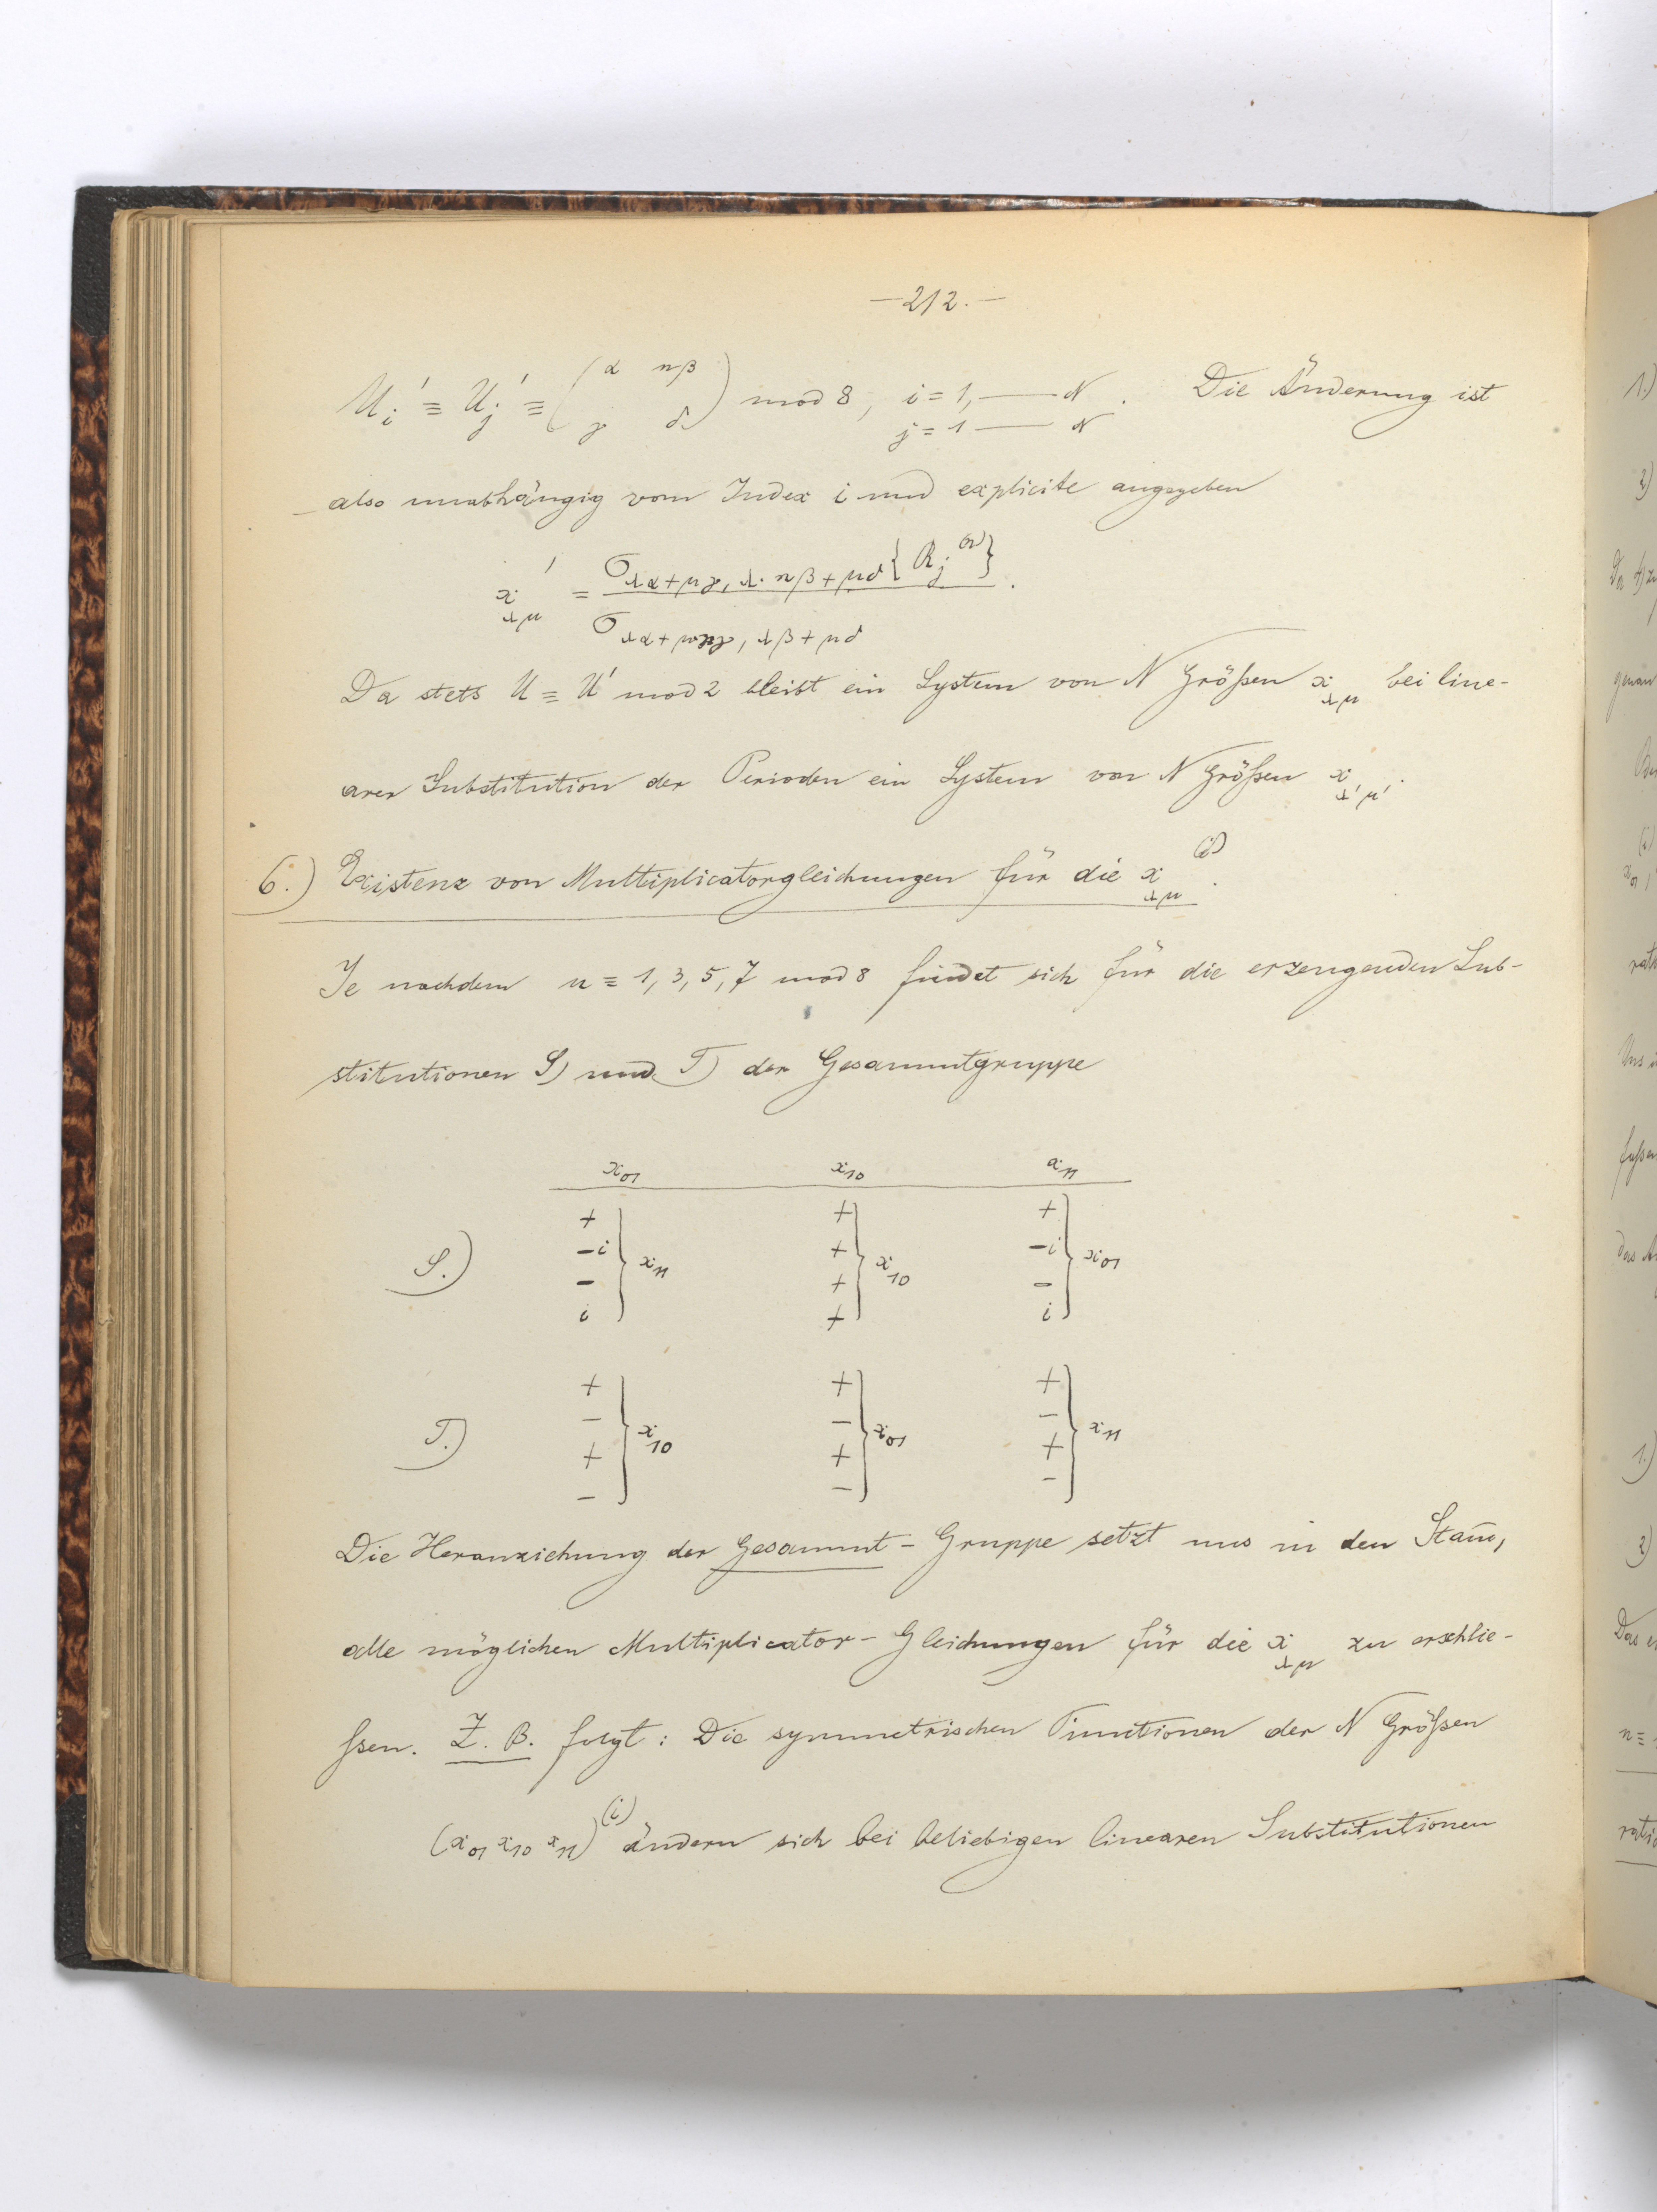 —212.—
U_i' ≡ U_j' ≡ (α nβ γ δ) mod 8, i = 1, — N. Die Änderung ist
j = 1 — N
also unabhängig vom Index i und explicite angegeben
x'_λμ = σ_λα+μγ, λ·nβ+μδ {R_j^(n)}.
σ_λα+μγ, λβ+μδ
Da stets U ≡ U' mod 2 bleibt ein System von N Größen x_λμ bei line-
arer Substitution der Perioden ein System von N Größen x_λ'μ'.
6.) Existenz von Multiplicatorgleichungen für die x_λμ^(i).
Je nachdem n ≡ 1, 3, 5, 7 mod 8 findet sich für die erzeugenden Sub-
stitutionen S) und T) der Gesammtgruppe
x_01 x_10 x_11
S.) + −i − i } x_11 + + + + } x_10 + −i − i } x_01
T.) + − + − } x_10 + − + − } x_01 + − + − } x_11
Die Heranziehung der Gesammt-Gruppe setzt uns in den Stand,
alle möglichen Multiplicator-Gleichungen für die x_λμ zu erschlie-
ssen. Z. B. folgt: Die symmetrischen Functionen der N Größen
(x_01 x_10 x_11)^(i) ändern sich bei beliebigen linearen Substitutionen